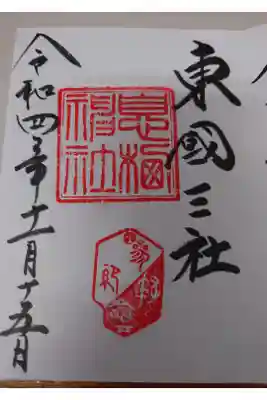 東國三社
息栖神社
令和四年十一月十五日